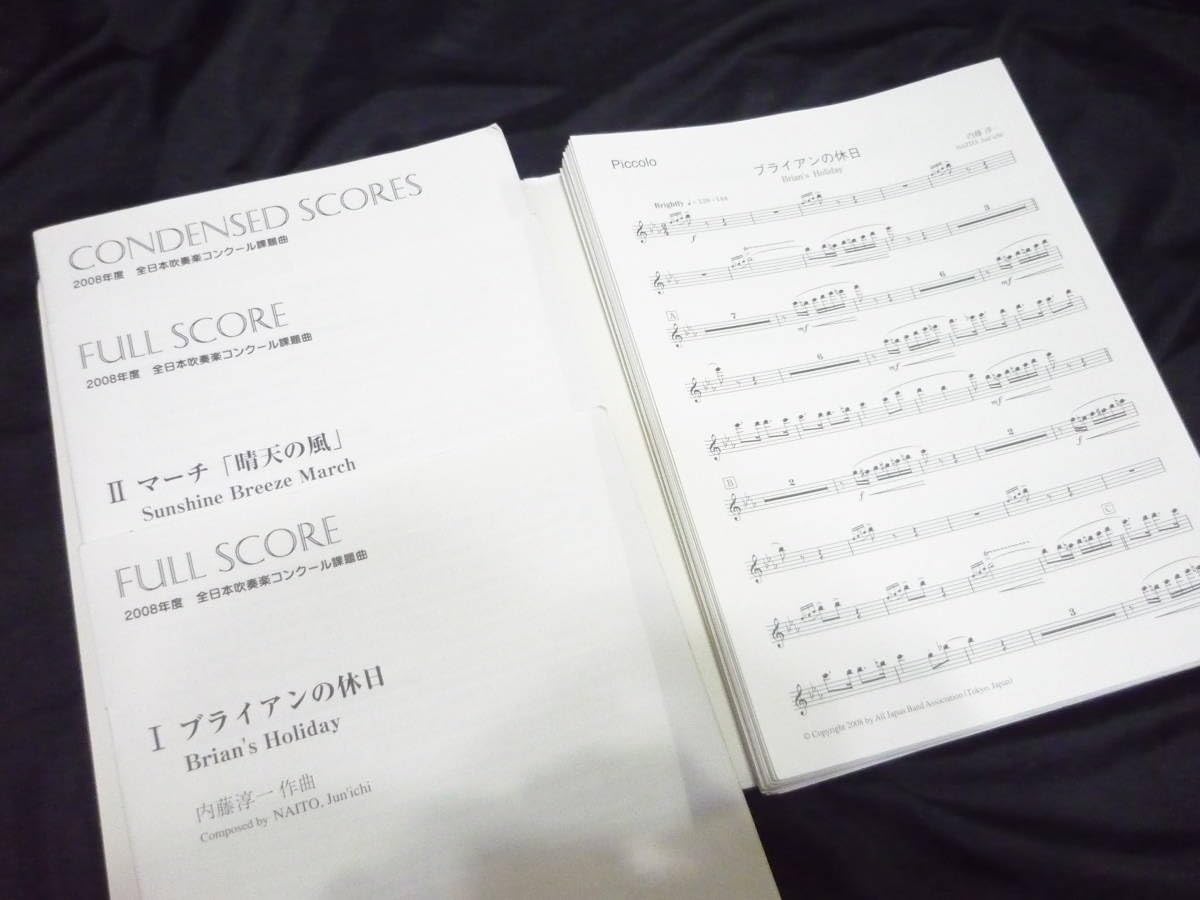 CONDENSED SCORES
2008年度 全日本吹奏楽コンクール課題曲
FULL SCORE
2008年度 全日本吹奏楽コンクール課題曲
II マーチ「晴天の風」
Sunshine Breeze March
FULL SCORE
2008年度 全日本吹奏楽コンクール課題曲
I ブライアンの休日
Brian's Holiday
内藤淳一 作曲
Composed by NAITO, Jun'ichi
Piccolo
ブライアンの休日
Brian's Holiday
内藤 淳一
NAITO, Jun'ichi
Brightly
f
3
A
7
mf
6
mf
6
mf
mf
B
2
f
2
f
C
3
© Copyright 2008 by All Japan Band Association (Tokyo, Japan)